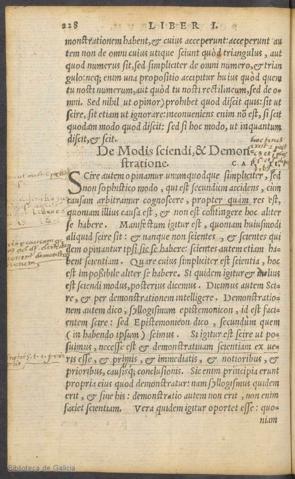 228 LIBER I.
monstrationem habent, & cuius acceperunt: acceperunt au
tem non de omni cuius utique sciunt quòd triangulus, aut
quod numerus sit, sed simpliciter de omni numero, & trian
gulo: neq; enim una propositio accipitur huius quòd quem
tu nosti numerum, aut quòd tu nosti rectilineum, sed de o-
mni. Sed nihil ut opinor) prohibet quod discit quis: sit ut
scire, sit etiam ut ignorare: inconueniens enim nō est, si scit
quodam modo quod discit: sed si hoc modo, ut inquantum
discit, & scit.
De Modis sciendi, & Demon-
stratione. CAP.
Scire autem opinamur unumquodque simpliciter, sed
non sophistico modo, qui est secundùm accidens, cùm
causam arbitramur cognoscere, propter quam res est,
quoniam illius causa est, & non est contingere hoc aliter
se habere. Manifestum igitur est, quoniam huiusmodi
aliquid scire sit: & nanque non scientes, & scientes qui
dem opinantur ipsi sic se habere: scientes autem etiam ha-
bent scientiam. Quare cuius simpliciter est scientia, hoc
est impoßibile aliter se habere. Si quidem igitur & alius
est sciendi modus, posterius dicemus. Dicimus autem Sci-
re, & per demonstrationem intelligere. Demonstratio-
nem autem dico, syllogismum epistemonicon, id est faci-
entem scire: sed Epistemonicon dico, secundùm quem
( in habendo ipsum ) scimus. Si igitur est scire ut po-
suimus, necesse est & demonstratiuam scientiam ex ue-
ris esse, & primis, & immediatis, & notioribus, &
prioribus, causisq; conclusionis. Sic enim principia erunt
propria eius quod demonstratur: nam syllogismus quidem
erit, & sine his: demonstratio autem non erit, non enim
faciet scientiam. Vera quidem igitur oportet esse: quo-
niam
Biblioteca de Galicia